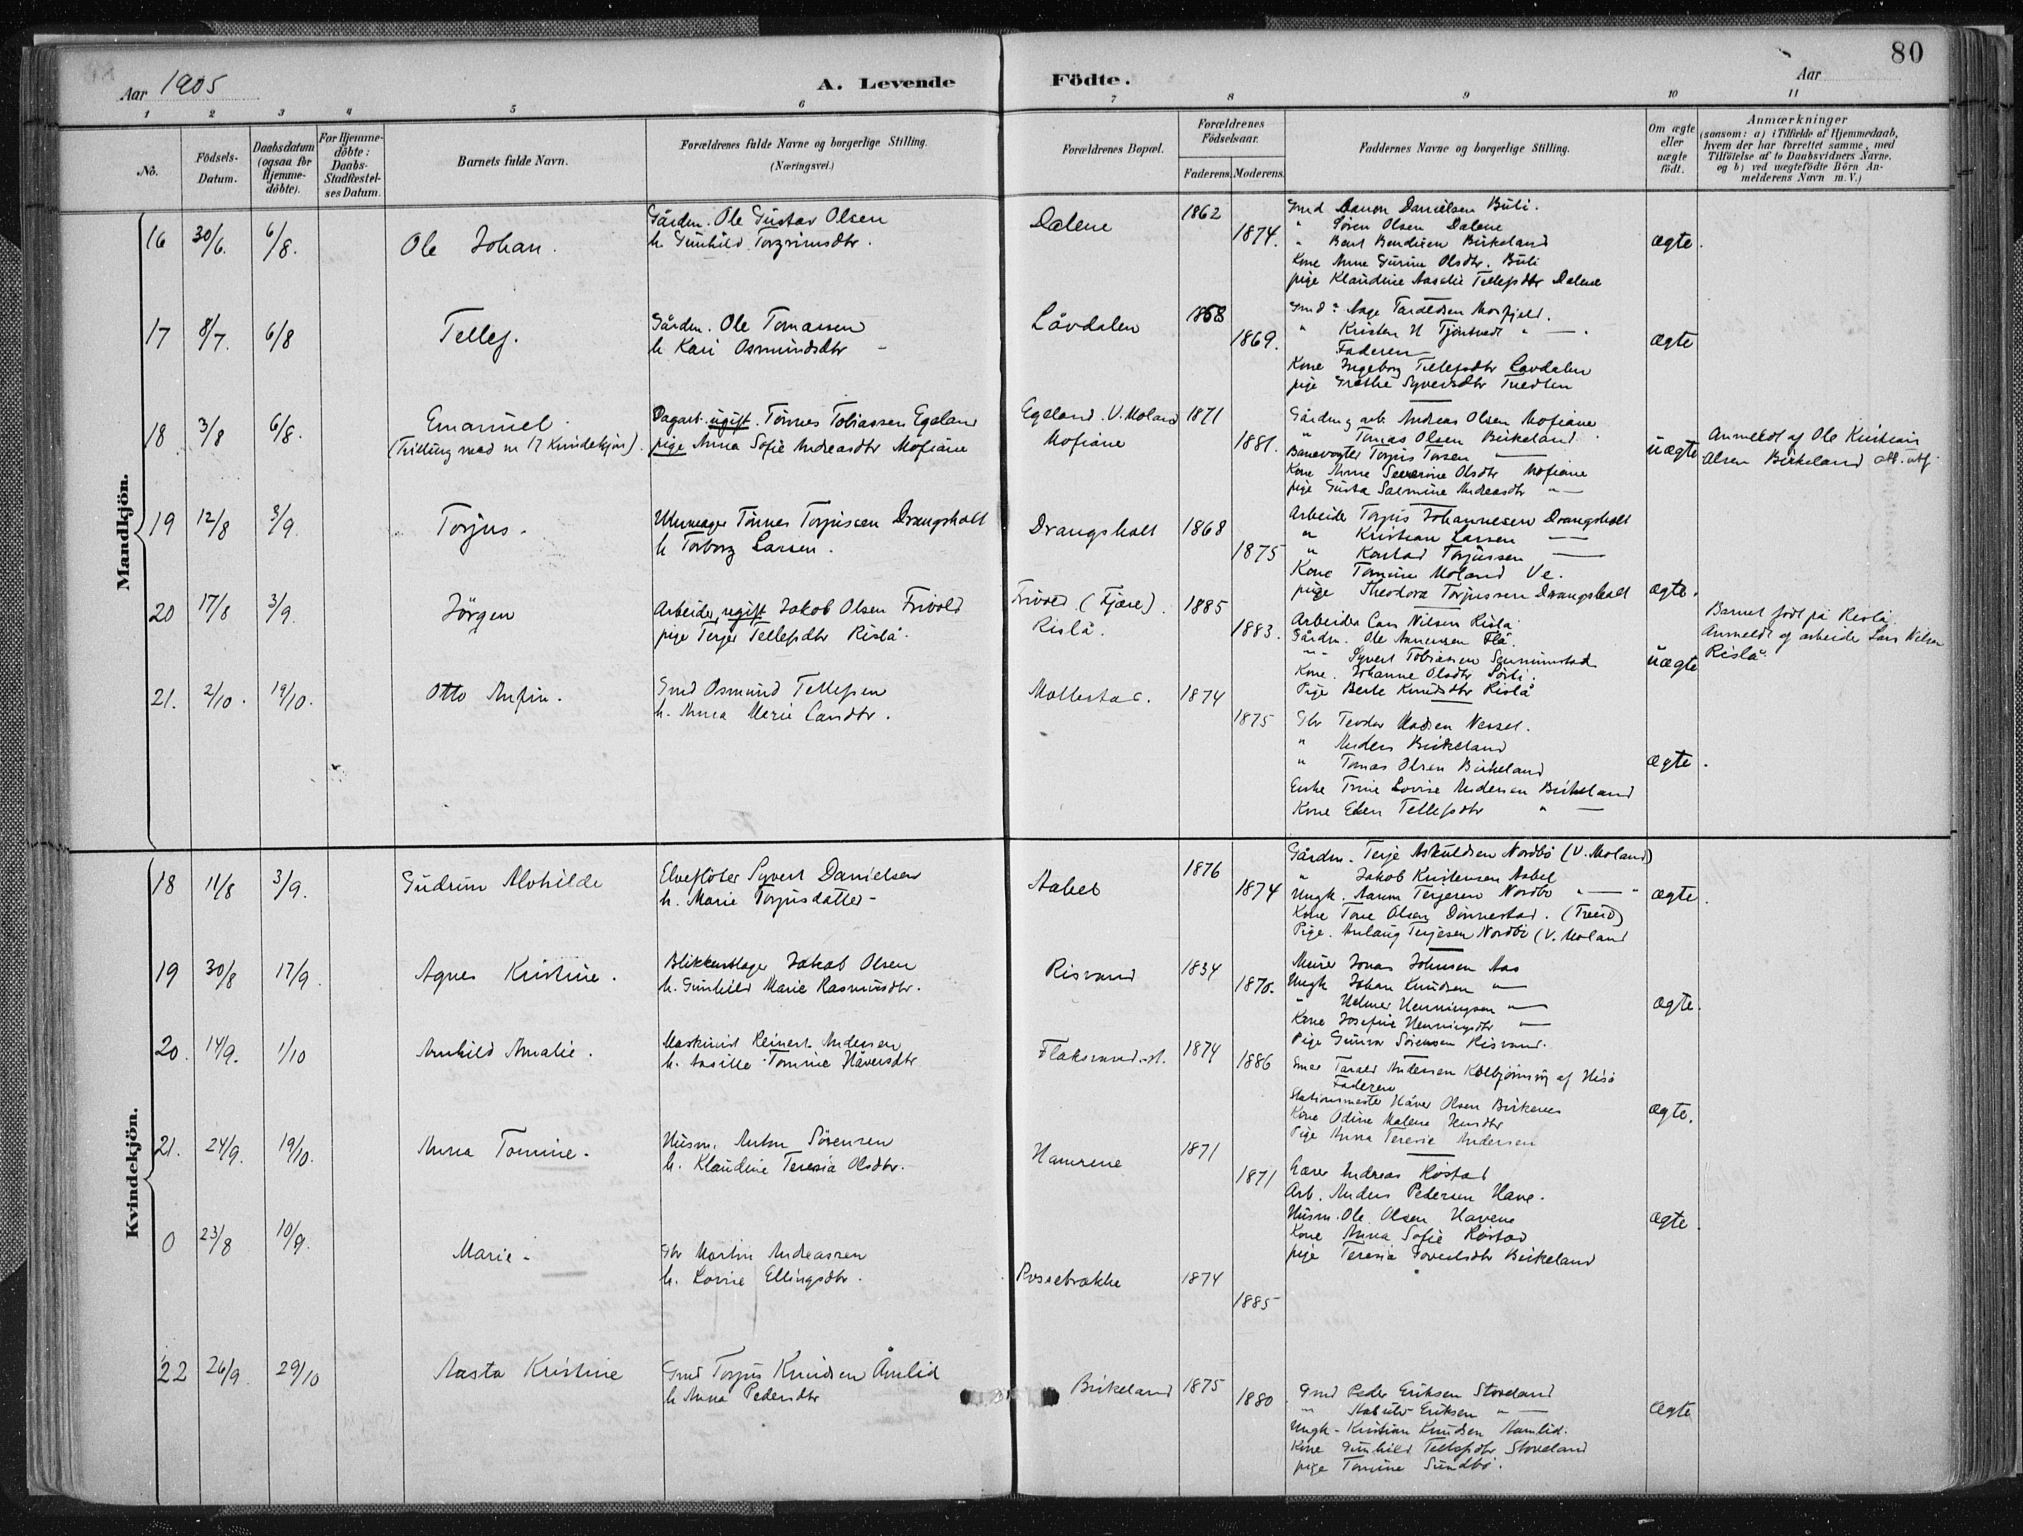 80
Aar 1905
A. Levende Födte.
Aar
1 2 3 4 5 6 7 8 9 10 11
No.
Födsels-Datum.
Daabsdatum (ogsaa för Hjemme-döbte).
For Hjemme-döbte: Daabs-Stadfæstel-ses Datum.
Barnets fulde Navn.
Forældrenes fulde Navne og borgerlige Stilling. (Næringsvei.)
Forældrenes Bopæl.
Forældrenes Födselsaar.
Faderens. Moderens.
Faddernes Navne og borgerlige Stilling.
Om ægte eller uægte födt.
Anmærkninger
(saasom: a) i Tilfælde af Hjemmedaab,
hvem der har forrettet samme, med
Tilföielse af to Daabsvidners Navne,
og b) ved uægtefödte Börn An-
melderens Navn m. V.)
Mandkjön.
16 30/6. 6/8. Ole Johan.
Gårdm. Ole Gustav Olsen
h. Gunhild Torgrimsdtr.
Dalene 1862 1874.
Gmd Danielsen Buli.
" Sören Olsen Dalene
" Bent Bendixen Birkeland
Kone Anne Gurine Olsdtr. Buli
pige Klaudine Aasalie Tellefsdtr Dalene
ægte.
17 8/7. 6/8 Tellef.
Gårdm. Ole Tomassen
h. Kari Osmundsdtr
Lövdalen 1868 1869.
Gmd: Aage Taraldsen Mosfjeld.
" Kristen N
Faderen
Kone Ingeborg Tellefsdtr Lövdalen
pige Grethe Syversdtr
ægte
18 3/8 6/8. Emanuel.
(Tvilling med nr 17 Kvindekjön).
Dagarb. ugift. Tönnes Tobiassen Egeland
pige Anna Sofie Andreasdtr Mofiane
Egeland. V. Moland
Mofiane
1871 1881.
Gårdm. arb. Andreas Olsen Mofiane
" Tomas Olsen Birkeland
Banevogter Torjus Torsen
Kone Anne Severine Olsdtr Mofiane
pige Gusta Salmine Andreasdtr "
uægte
Anmeldt af Ole Kristian
Olsen Birkeland
19 12/8 3/9. Torjus.
Tönnes Torjussen Drangsholt
h. Torborg Larsen.
Drangsholt 1868 1875
Arbeider Torjus Johannesen Drangsholt
" Kristian Larsen
" Konrad Torjussen
Kone Tomine Moland Ve.
pige Theodora Torjussen Drangsholt
ægte.
20 17/8 3/9. Jörgen
Arbeider, ugift Jakob Olsen Frivold
pige Terjer Tellefsdtr Rislå.
Frivold (Fjære).
Rislå.
1885 1883.
Arbeider Lars Nilsen Rislå
Gårdm. Ole Flå.
" Syvert Tobiassen
Kone. Johanne Olsdtr
Pige Berte Knudsdtr Rislå
uægte
Barnet född på Rislå.
Anmeldt af arbeider Lars Nilsen
Rislå
21. 2/10. 19/10. Otto Anfin.
Gmd Osmund Tellefsen
h. Anna Marie Larsdtr.
Mollestad. 1874 1875
Gbr Teodor Madsen
" Anders Birkeland
" Tomas Olsen Birkeland
Enke Trine Lovise Andersen Birkeland
Kone Ellen Tellefsdtr "
ægte.
Kvindekjön.
18 11/8 3/9. Gudrun Alvhilde
Elveflöter Syvert Danielsen
h. Marie Torjusdatter
Aabel 1876 1874
Gårdm. Terje Askuldsen Nordbö (V. Moland)
" Jakob Kristensen Aabel
Ungk. Aanon Terjesen Nordbö "
Kone Tone Olsen Dönnestad. (Tveid)
Pige. Anlaug Terjesen Nordbö (V. Moland
ægte.
19 30/8 17/9. Agnes Kristine.
Blikkenslager Jakob Olsen
h. Gunhild Marie Rasmusdtr.
Risvand 1834 1870.
Murer Jonas Johnsen Aas
Ungk Johan Knudsen "
" Helmer Henningsen "
Kone Josefine Henningsdtr "
Pige Gunvor Sörensen Risvand.
ægte.
20. 14/9. 1/10 Arnhild Amalie.
Maskinist Reinert Andersen
h. Aasille Tomine Håversdtr
Flaksvand st. 1874 1886
Gmd Tarald Andersen Kolbjörnsvig af Hisö
Faderen
Stationsmester Håver Olsen Birkenes
Kone Odine Malene
Pige Anna Teresie Andersen
ægte.
21. 24/9. 19/10. Anna Tomine.
Husm. Anton Sörensen
h. Klaudine Teresia Olsdtr.
Havrene 1871 1871
Lærer Andreas Röstad
Arb. Anders Pedersen Have.
Husm. Ole Olsen Havene
Kone Anna Sofie Röstad
pige Teresia Birkeland
ægte
0 23/8 10/9. Marie.
Gbr Martin Andreassen
h. Lovise Ellingsdtr.
Possebrække 1874 1885
22 26/9. 29/10 Aasta Kristine
Gmd Torjus Knudsen Åmlid
h Anna Pedersdtr
Birkeland 1875 1880
Gmd Peder Eriksen Stoveland
" Eriksen "
Ungk. Kristian Knudsen Aamlid.
Kone Gunhild Tellefsdtr Stoveland
pige Tomine Sundbö.
ægte